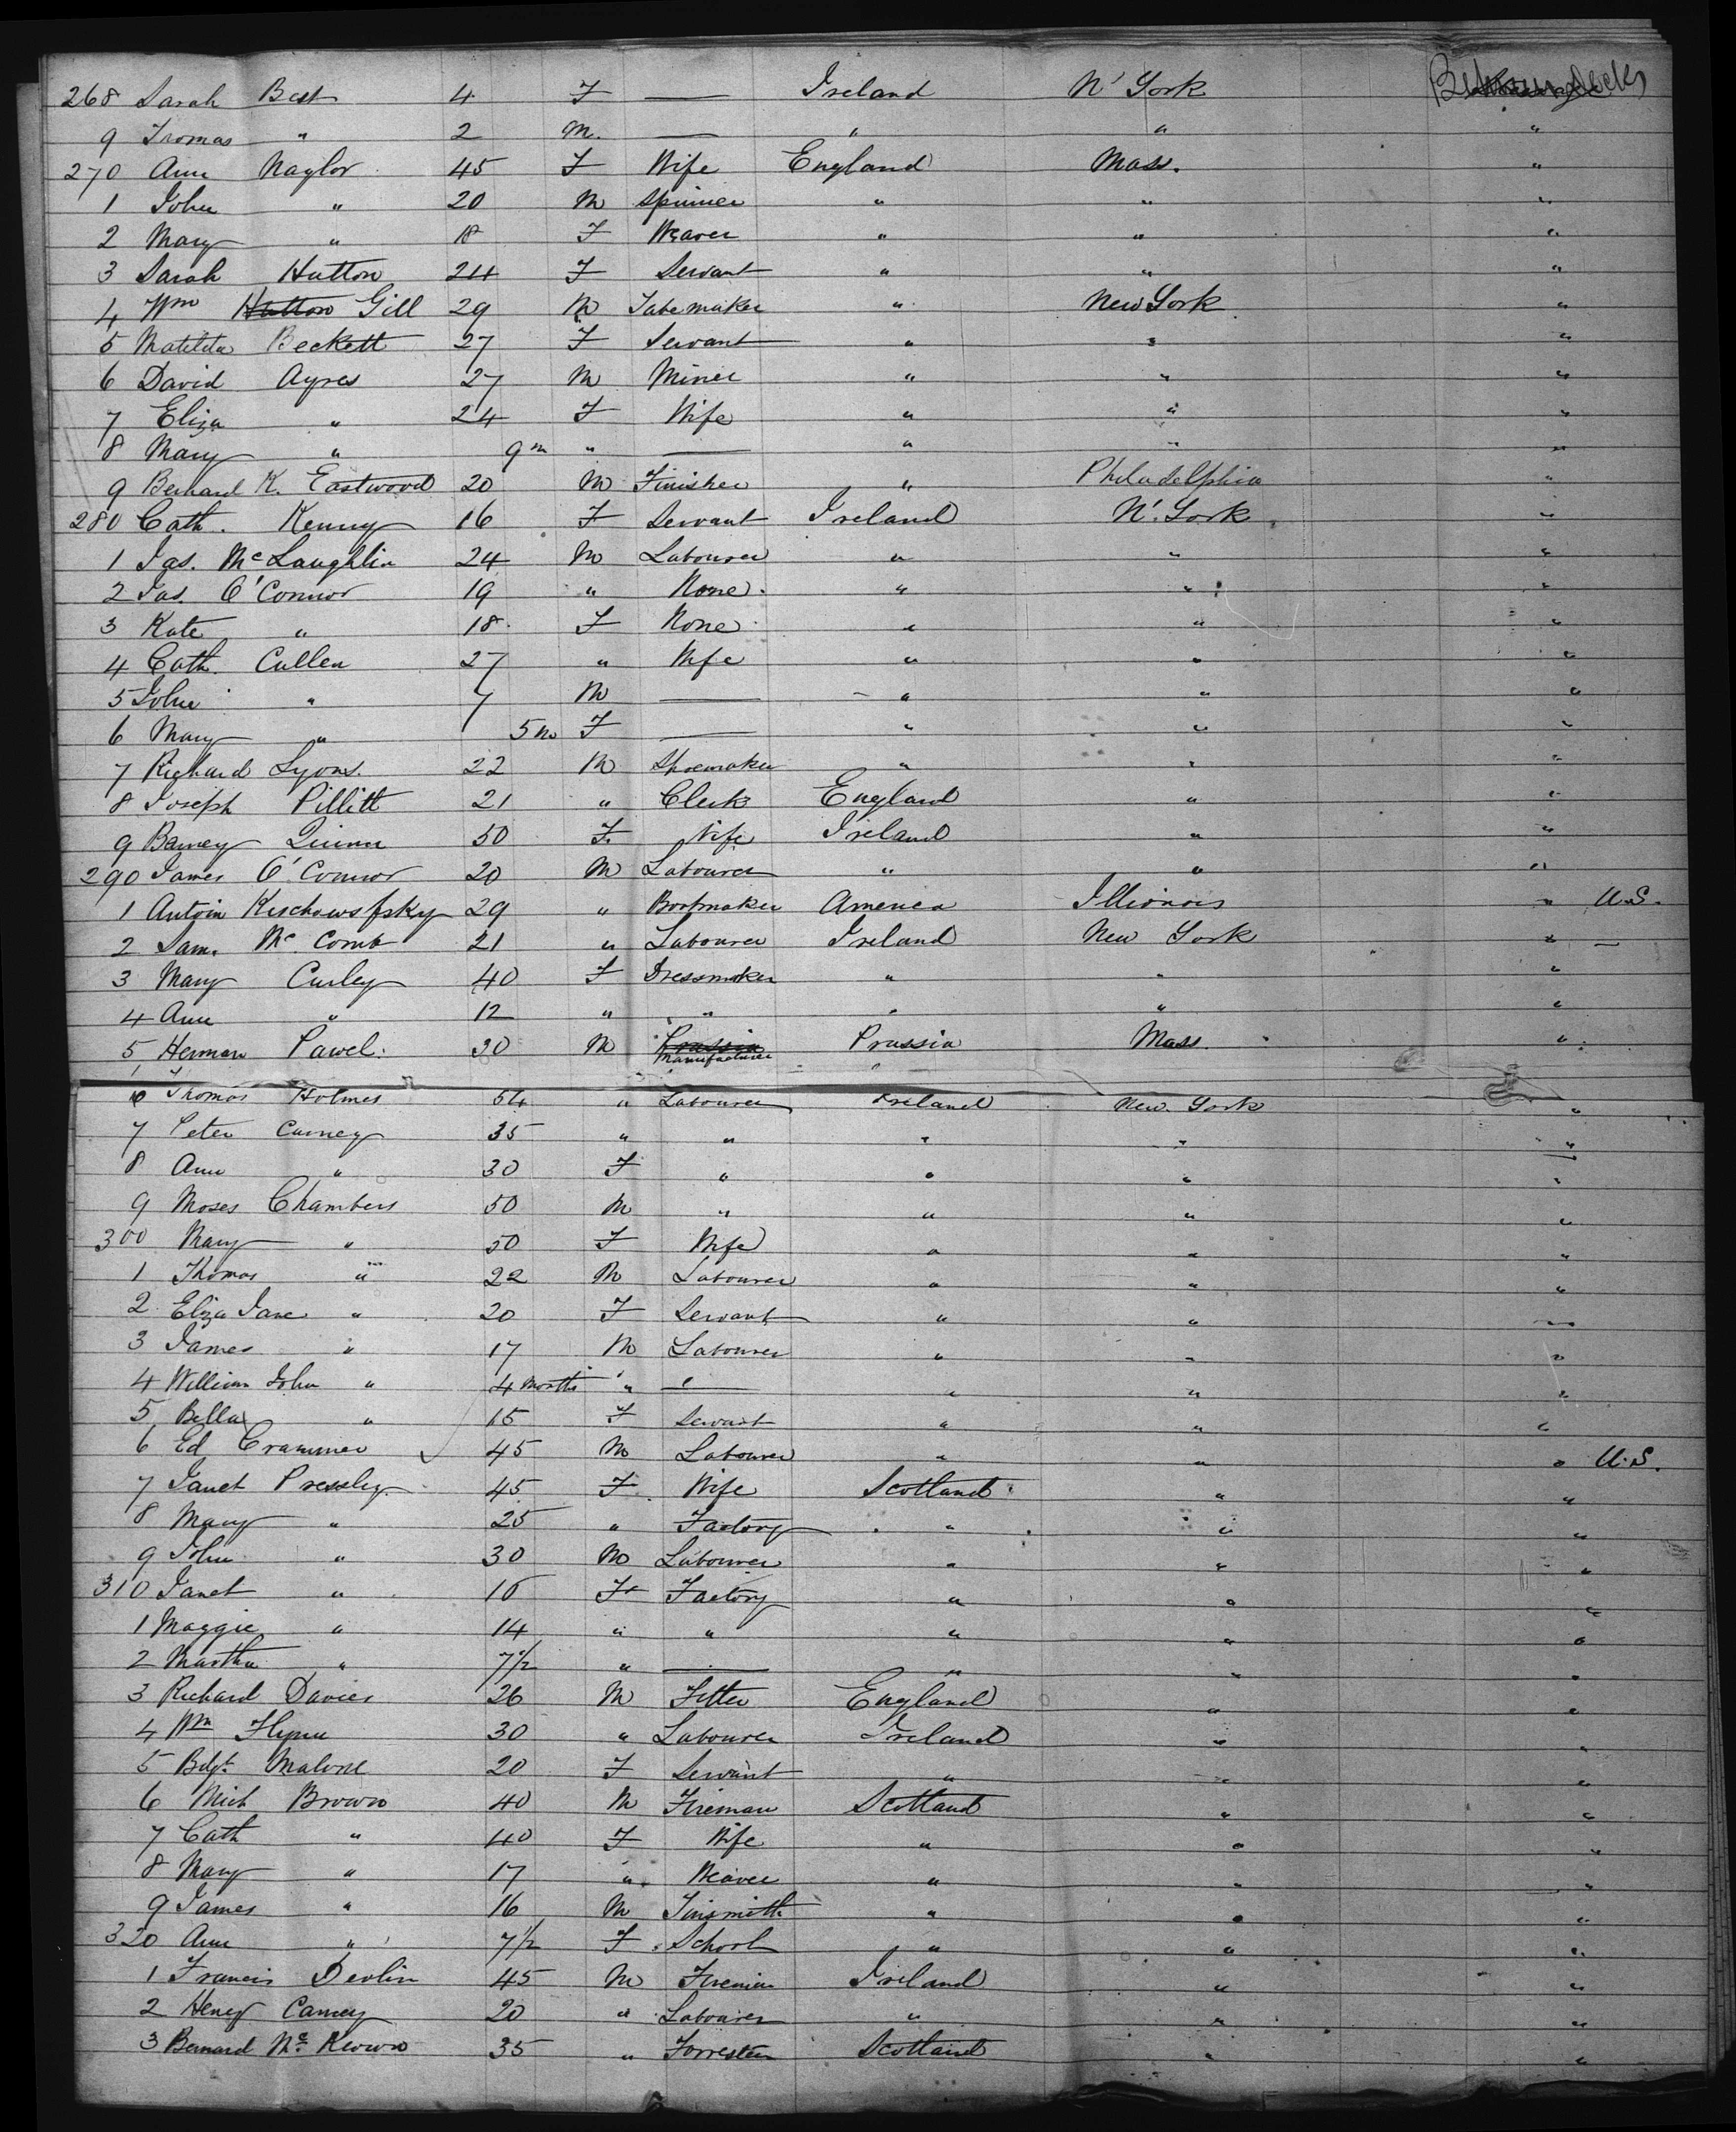 268 Sarah Best 4 F — Ireland N' York Between decks
9 Tromas " 2 M. — " " "
270 Ann Naylor 45 F Wife England Mass. "
1 John " 20 M Spinner " " "
2 Mary " 18 F Weaver " " "
3 Sarah Hutton 24 F Servant " " "
4 Wm Hutton Gill 29 M Tubemaker " New York "
5 Matilda Beckett 27 F Servant " " "
6 David Ayres 27 M Miner " " "
7 Eliza " 24 F Wife " " "
8 Mary " 9m " — " " "
9 Bernard K. Eastwood 20 M Finisher " Philadelphia "
280 Cath. Kenny 16 F Servant Ireland N'. York "
1 Jas. McLaughlin 24 M Labourer " " "
2 Jas. O'Connor 19 " None. " " "
3 Kate " 18. F None " " "
4 Cath. Cullen 27 " Wife " " "
5 John " 7 M — " " "
6 Mary " 5 m F — " " "
7 Richard Lyons. 22 M Shoemaker " " "
8 Joseph Pillitt 21 " Clerk England " "
9 Barney Quinn 50 F. Wife Ireland " "
290 James O'Connor 20 M Labourer " " "
1 Antoin Kischowsfsky 29 " Bootmaker America Illionois " U.S.
2 Sam. McComb 21 " Labourer Ireland New York " —
3 Mary Curley 40 F Dressmaker " " "
4 Ann " 12 " " " " "
5 Herman Pawel. 30 M Prussia Manufacturer Prussia Mass. "
6 Thomas Holmes 54 " Labourer Ireland New York "
7 Peter Carney 35 " " " " "
8 Ann " 30 F " " " "
9 Moses Chambers 50 M " " " "
300 Mary " 50 F Wife " " "
1 Thomas " 22 M Labourer " " "
2 Eliza Jane " 20 F Servant " " "
3 James " 17 M Labourer " " "
4 William John " 4 months " — " " "
5 Bella " 15 F Servant " " "
6 Ed Crammer 45 M Labourer " " " U.S.
7 Janet Pressley 45 F. Wife Scotland " "
8 Mary " 25 " Factory " " "
9 John " 30 M Labourer " " "
310 Janet " 16 F Factory " " "
1 Maggie " 14 " " " " "
2 Martha " 7½ " — " " "
3 Richard Davies 26 M Fitter England " "
4 Wm Flynn 30 " Labourer Ireland " "
5 Bdgt. Malone 20 F Servant " " "
6 Mich Brown 40 M Fireman Scotland " "
7 Cath " 40 F Wife " " "
8 Mary " 17 " Weaver " " "
9 James " 16 M Tinsmith " " "
320 Ann " 7½ F School " " "
1 Francis Devlin 45 M Fireman Ireland " "
2 Henry Carney 20 " Labourer " " "
3 Bernard Mc Keown 35 " Forrester Scotland " "